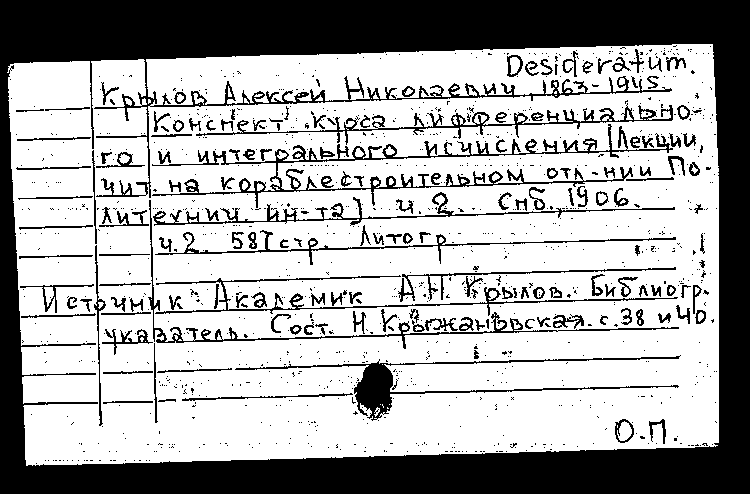 Desideratum.
Крылов Алексей Николаевич, 1863-1945.
Конспект курса дифференциально-
го и интегрального исчисления [Лекции,
чит. на кораблестроительном отл-нии По-
литехнич. ин-та] ч. 2. Спб., 1906.
ч. 2. 587 стр. Литогр.
Источник: Академик А.Н. Крылов. Библиогр.
указатель. Сост. Н. Крыжановская. с. 38 и 40.
О.П.